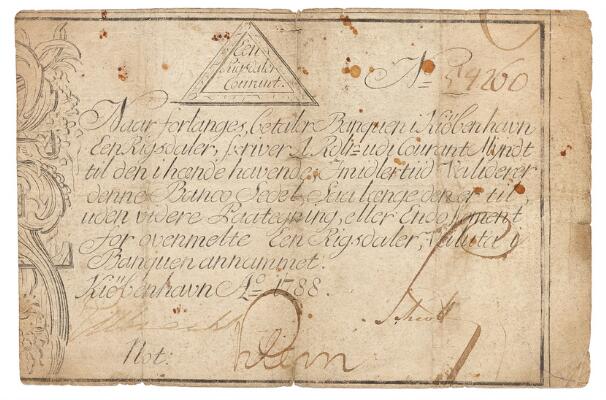 Een
Rigsdaler
Courant.
No 54260
Naar forlanges, betaler Banquen i Kiøbenhavn
Een Rigsdaler, skriver 1 Rdlr. udi Courant Myndt
til den ihændehavende. Imidlertid validerer
denne Banco Sedel, saalænge den er til,
uden videre Paategning, eller Endossement
for ovenmelte Een Rigsdaler, Valuta i
Banquen annammet.
Kiøbenhavn Ao 1788.
Not: